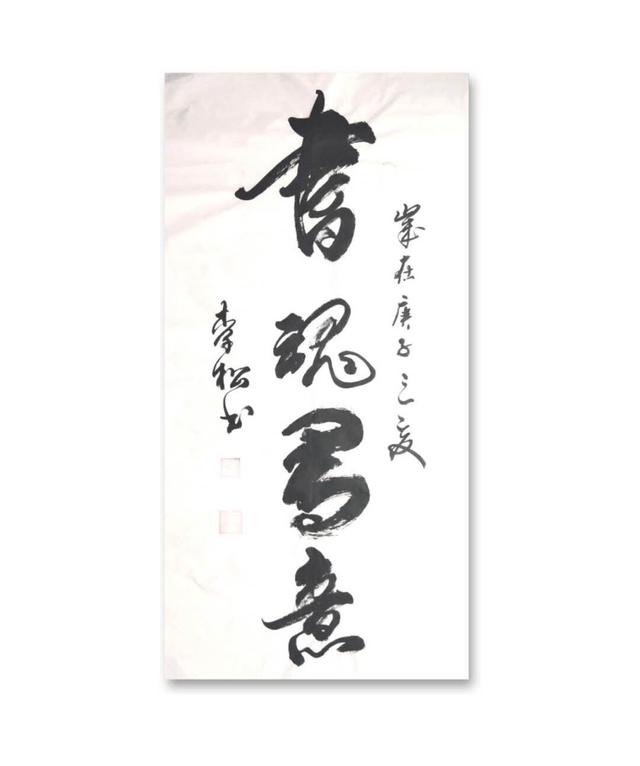 歲在庚子之夏
書魂寫意
李松书